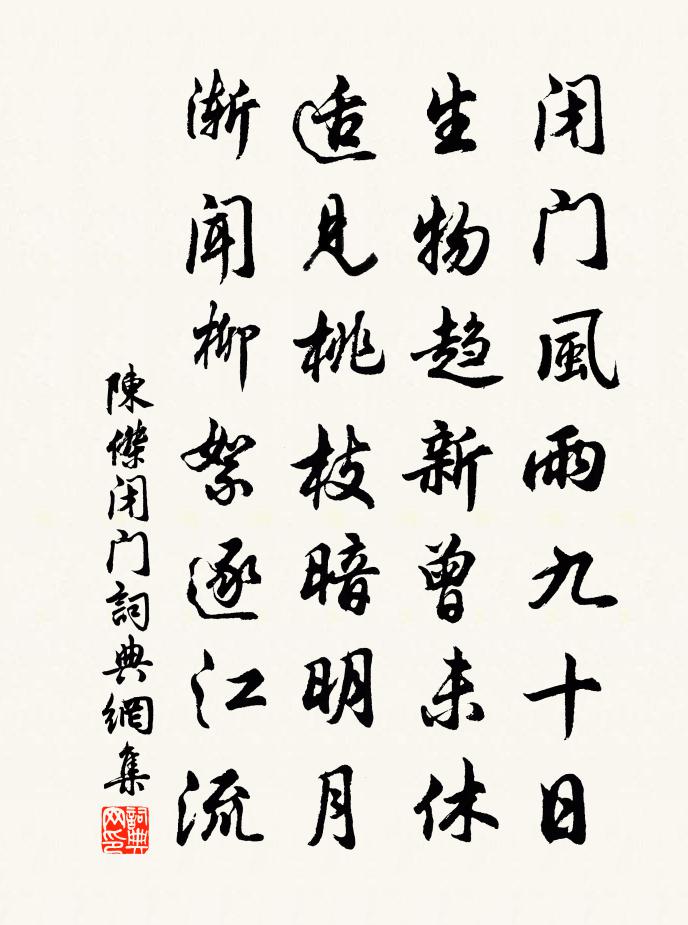 闭门風雨九十日
生物趋新曾未休
适見桃枝暗明月
渐闻柳絮逐江流
陳傑闭门詞典網集
詞典网印